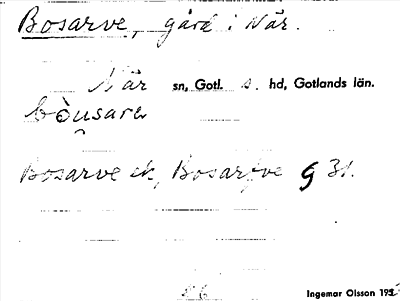 Bosarve, gård i När.
När sn, Gotl. s. hd, Gotlands län.
bòusarv
Bosarve sk, Bosarfve G 31.
Ingemar Olsson 195